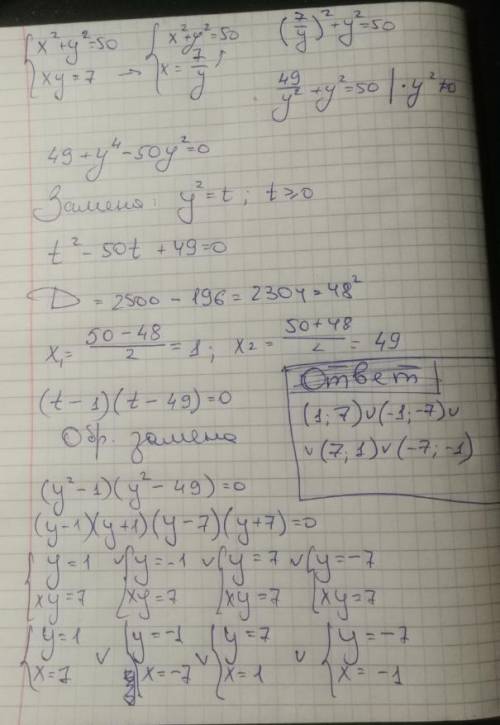 {x²+y²=50 {x²+y²=50 (7/y)²+y²=50
{xy=7 → {x=7/y;
49/y²+y²=50 |·y²≠0
49+y⁴-50y²=0
Замена: y²=t; t≥0
t²-50t+49=0
D=2500-196=2304=48²
x₁=(50-48)/2=1; x₂=(50+48)/2=49
(t-1)(t-49)=0
Обр. замена
Ответ
(1;7)∨(-1;-7)∨
∨(7;1)∨(-7;-1)
(y²-1)(y²-49)=0
(y-1)(y+1)(y-7)(y+7)=0
{y=1 ∨ {y=-1 ∨ {y=7 ∨ {y=-7
{xy=7 {xy=7 {xy=7 {xy=7
{y=1 ∨ {y=-1 ∨ {y=7 ∨ {y=-7
{x=7 {x=-7 {x=1 {x=-1